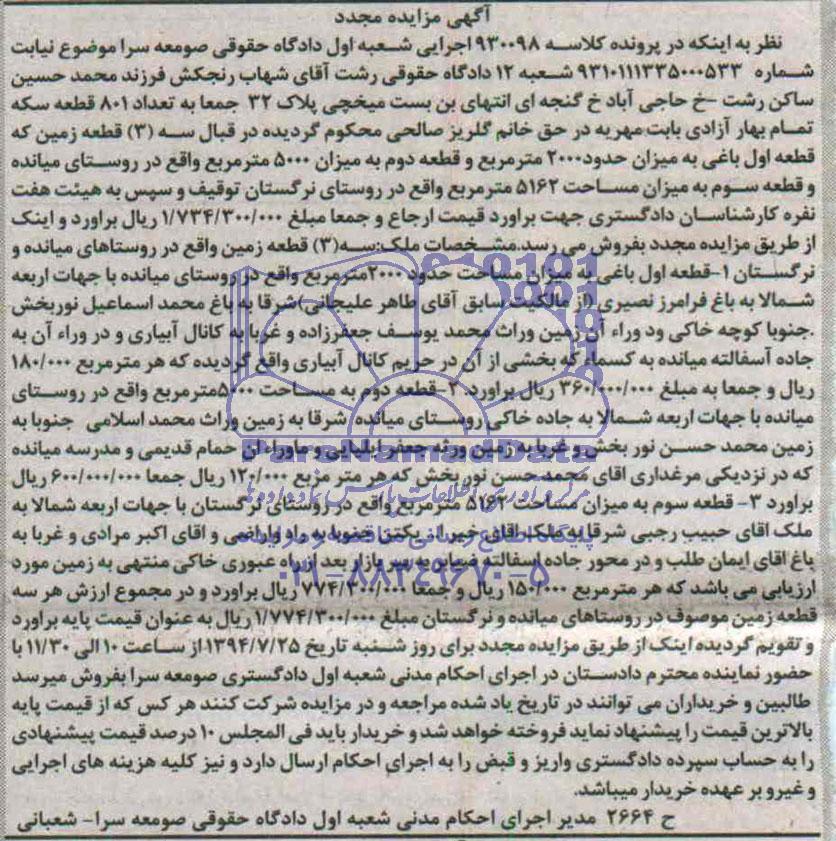 آگهی مزایده مجدد
نظر به اینکه در پرونده کلاسه ۹۳۰۰۹۸ اجرایی شعبه اول دادگاه حقوقی صومعه سرا موضوع نیابت
شماره ۹۳۱۰۱۱۱۳۳۵۰۰۰۵۳۳ شعبه ۱۲ دادگاه حقوقی رشت آقای شهاب رنجکش فرزند محمد حسین
ساکن رشت -خ حاجی آباد خ گنجه ای انتهای بن بست میخچی پلاک ۳۲ جمعا به تعداد ۸۰۱ قطعه سکه
تمام بهار آزادی بابت مهریه در حق خانم گلریز صالحی محکوم گردیده در قبال سه (۳) قطعه زمین که
قطعه اول باغی به میزان حدود۲۰۰۰ مترمربع و قطعه دوم به میزان ۵۰۰۰ مترمربع واقع در روستای میانده
و قطعه سوم به میزان مساحت ۵۱۶۲ مترمربع واقع در روستای نرگستان توقیف و سپس به هیئت هفت
نفره کارشناسان دادگستری جهت براورد قیمت ارجاع و جمعا مبلغ ۱/۷۳۴/۳۰۰/۰۰۰ ریال براورد و اینک
از طریق مزایده مجدد بفروش می رسد.مشخصات ملک:سه(۳) قطعه زمین واقع در روستاهای میانده و
نرگستان ۱-قطعه اول باغی به میزان مساحت حدود ۲۰۰۰مترمربع واقع در روستای میانده با جهات اربعه
شمالا به باغ فرامرز نصیری (از مالکیت سابق آقای طاهر علیجانی)شرقا به باغ محمد اسماعیل نوربخش
.جنوبا کوچه خاکی ود وراء آن زمین وراث محمد یوسف جعفرزاده و غربا به کانال آبیاری و در وراء آن به
جاده آسفالته میانده به کسماء که بخشی از آن در حریم کانال آبیاری واقع گردیده که هر مترمربع ۱۸۰/۰۰۰
ریال و جمعا به مبلغ ۳۶۰/۰۰۰/۰۰۰ ریال براورد. ۲-قطعه دوم به مساحت ۵۰۰۰مترمربع واقع در روستای
میانده با جهات اربعه شمالا به جاده خاکی روستای میانده شرقا به زمین وراث محمد اسلامی جنوبا به
زمین محمد حسن نور بخش و غربا به زمین ورثه جعفر ایلیایی و ماوراء ان حمام قدیمی و مدرسه میانده
که در نزدیکی مرغداری اقای محمد حسن نوربخش که هر متر مربع ۱۲۰/۰۰۰ ریال جمعا ۶۰۰/۰۰۰/۰۰۰ ریال
براورد ۳- قطعه سوم به میزان مساحت ۵۱۶۲ مترمربع واقع در روستای نرگستان با جهات اربعه شمالا به
ملک اقای حبیب رجبی شرقا به ملک اقای جنوبا به راه واراضی و اقای اکبر مرادی و غربا به
باغ اقای ایمان طلب و در محور جاده اسفالته به سر بازار بعد از راه عبوری خاکی منتهی به زمین مورد
ارزیابی می باشد که هر مترمربع ۱۵۰/۰۰۰ ریال و جمعا ۷۷۴/۳۰۰/۰۰۰ ریال براورد و در مجموع ارزش هر سه
قطعه زمین موصوف در روستاهای میانده و نرگستان مبلغ ۱/۷۷۴/۳۰۰/۰۰۰ ریال به عنوان قیمت پایه براورد
و تقویم گردیده اینک از طریق مزایده مجدد برای روز شنبه تاریخ ۱۳۹۴/۷/۲۵ از ساعت ۱۰ الی ۱۱/۳۰ با
حضور نماینده محترم دادستان در اجرای احکام مدنی شعبه اول دادگستری صومعه سرا بفروش میرسد
طالبین و خریداران می توانند در تاریخ یاد شده مراجعه و در مزایده شرکت کنند هر کس که از قیمت پایه
بالاترین قیمت را پیشنهاد نماید فروخته خواهد شد و خریدار باید فی المجلس ۱۰ درصد قیمت پیشنهادی
را به حساب سپرده دادگستری واریز و قبض را به اجرای احکام ارسال دارد و نیز کلیه هزینه های اجرایی
و غیرو بر عهده خریدار میباشد.
ح ۲۶۶۴ مدیر اجرای احکام مدنی شعبه اول دادگاه حقوقی صومعه سرا- شعبانی
ParsNamadData
پایگاه اطلاع رسانی مناقصه و مزایده
۰۲۱-۸۸۳۴۹۶۷۰-۵